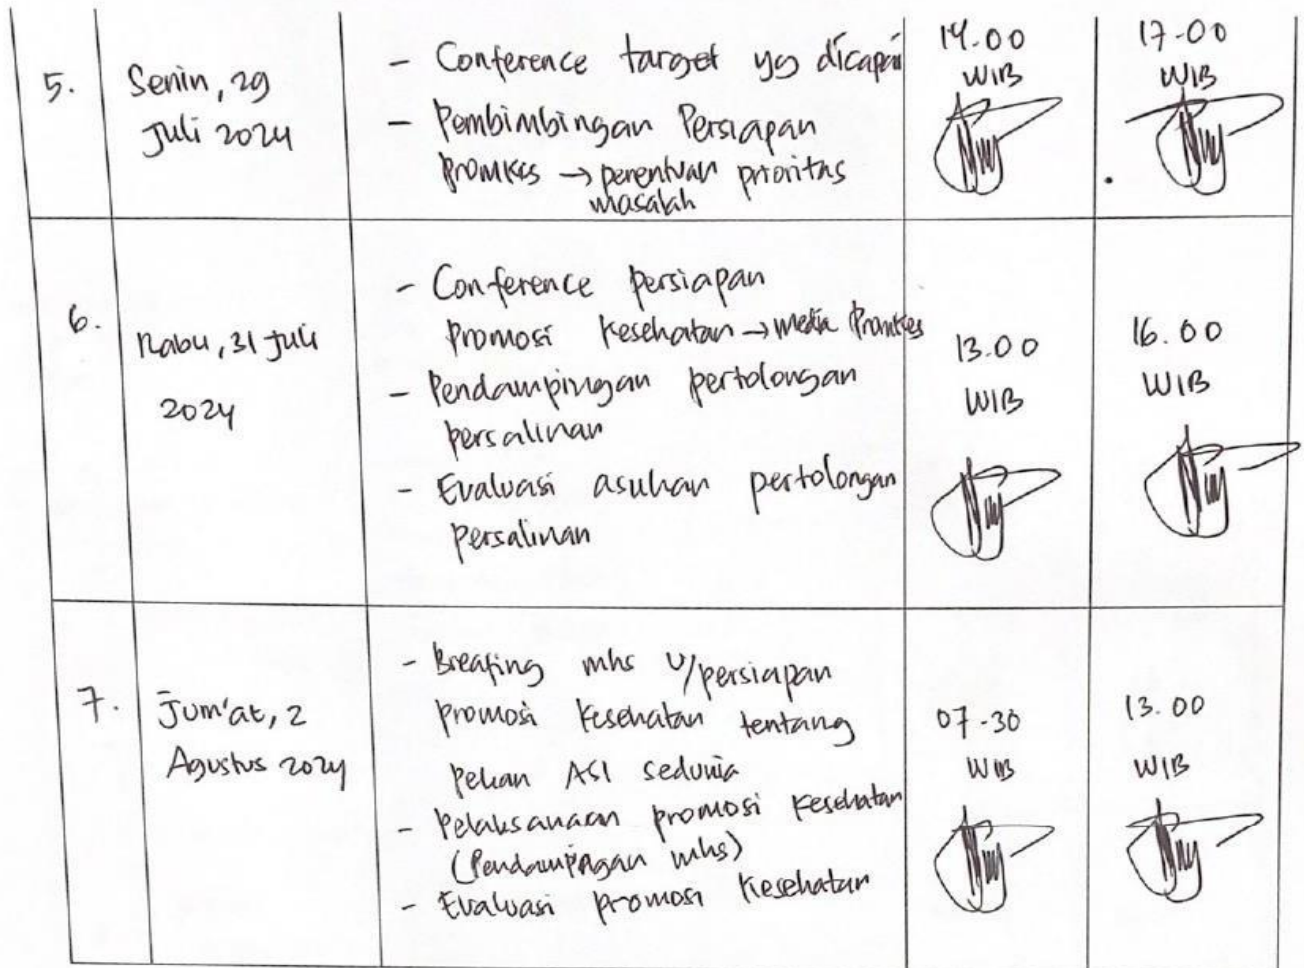 5.
Senin, 29
Juli 2024
- Conference target yg dicapai
- Pembimbingan Persiapan
Promkes → penentuan prioritas
masalah
14.00
WIB
17-00
WIB
6.
Rabu, 31 Juli
2024
- Conference persiapan
Promosi Kesehatan → media Promkes
- Pendampingan pertolongan
persalinan
- Evaluasi asuhan pertolongan
persalinan
13.00
WIB
16.00
WIB
7.
Jum'at, 2
Agustus 2024
- Breafing mhs U/persiapan
promosi Kesehatan tentang
pekan ASI sedunia
- Pelaksanaan promosi Kesehatan
(Pendampingan mhs)
- Evaluasi promosi Kesehatan
07-30
WIB
13.00
WIB